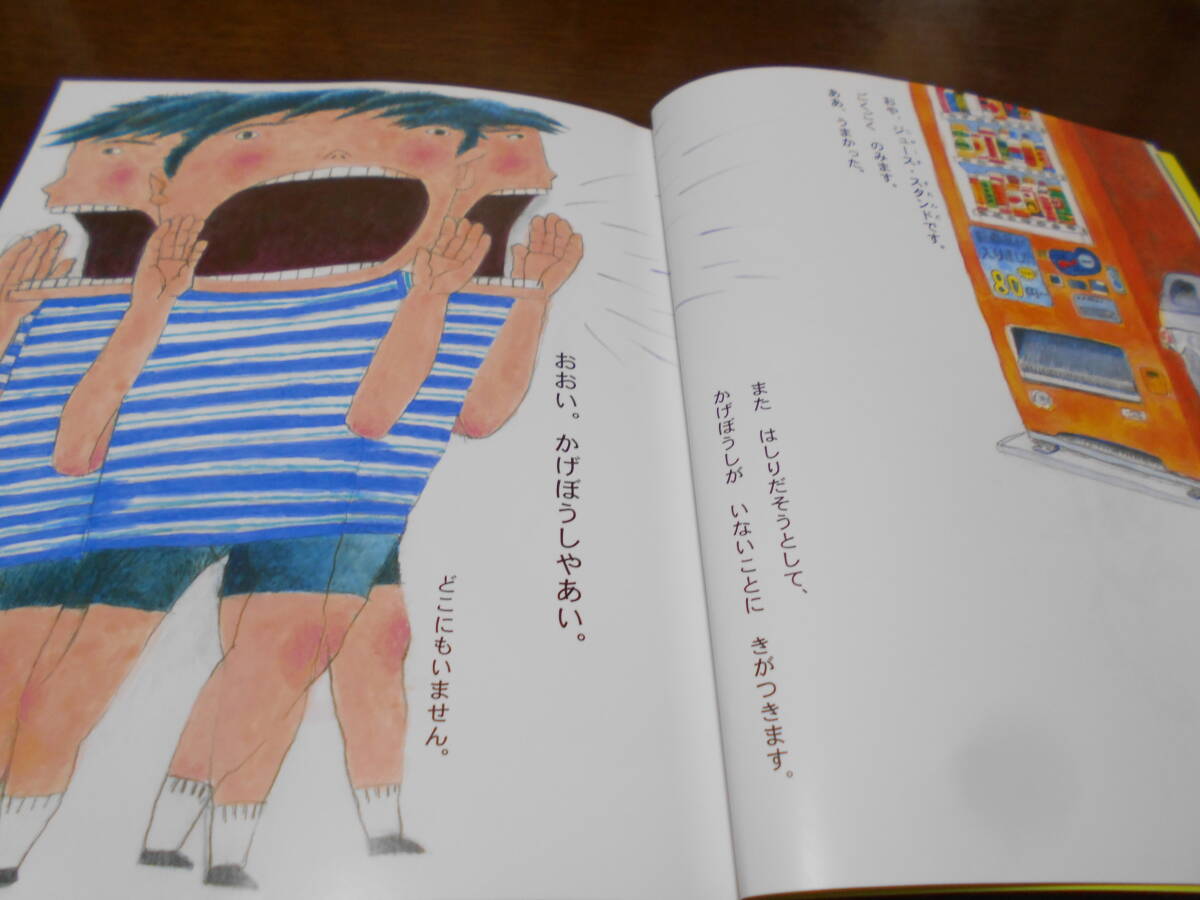 おや、ジュース・スタンドです。
ごくごく のみます。
ああ、うまかった。
また はしりだそうとして、
かげぼうしが いないことに きがつきます。
おおい。かげぼうしやあい。
どこにもいません。
80